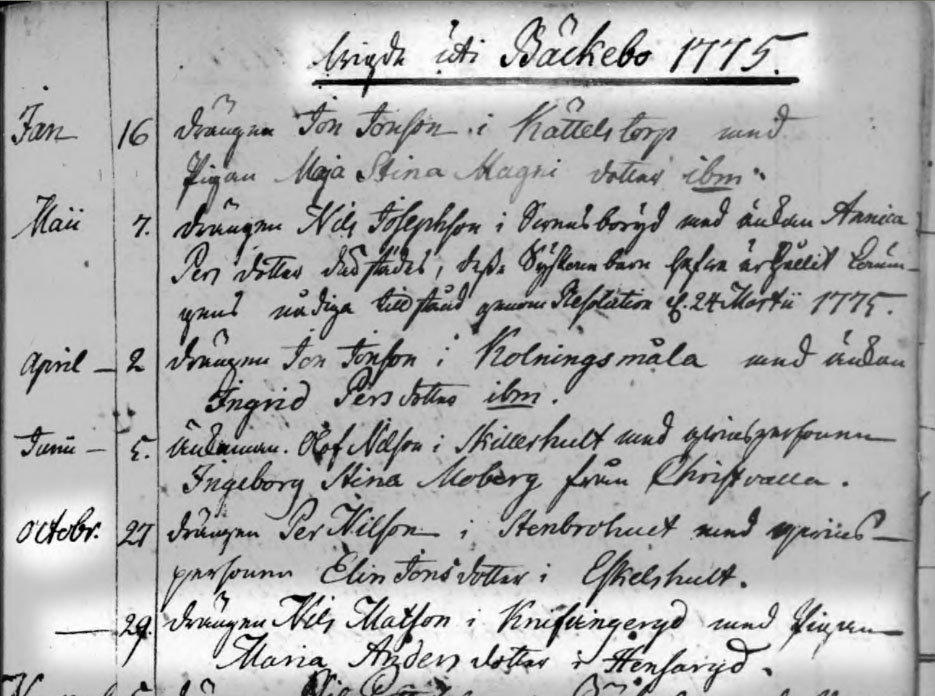 Vigde uti Bäckebo 1775.
Jan 16 drängen Jon Jonson i Kättelstorp med
Pigan Maja Stina Magni dotter ibm.
Maii 7. drängen Nils Josephson i med änkan Annica
Pers dotter dädstädes, desse Syskonebarn hafva ärhållit Konun-
gens nådiga tillstånd genom Resolution af 24 Martii 1775.
April - 2 drängen Jon Jonson i Kolningsmåla med änkan
Ingrid Persdotter ibm.
Junii - 5. Änkeman. Olof Nilson i Skillershult med qvinspersonen
Ingeborg Stina Moberg från Christvalla.
Octobr. 27 drängen Per Nilson i Stenbrohult med qvins-
personen Elin Jonsdotter i Eskelshult.
— 29. drängen Nils Matson i Knifingeryd med Pigan
Maria Anders dotter i Hensaryd.